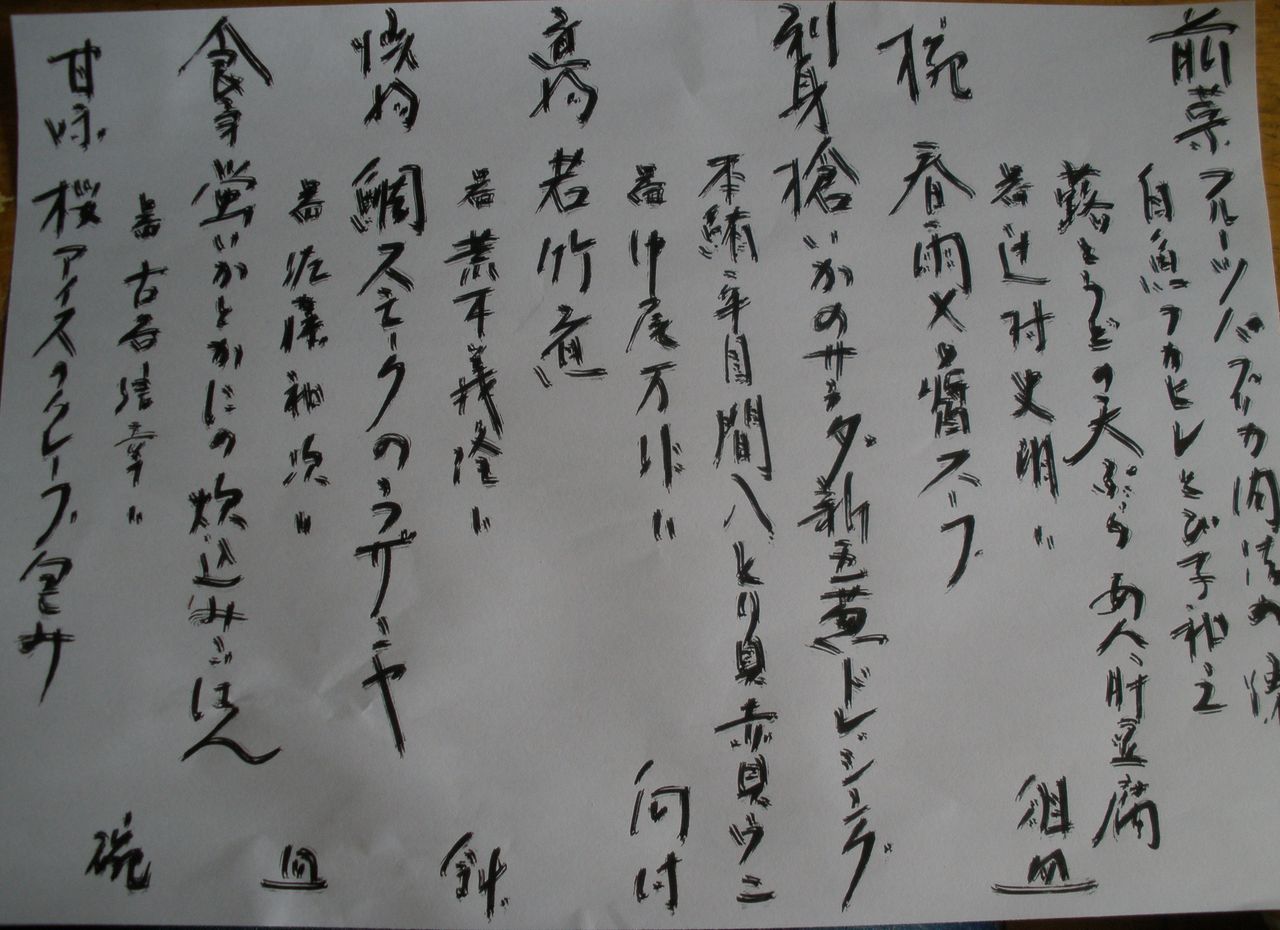 前菜 フルーツパプリカ 肉味噌
白魚フカヒレとび子和え
蕗とうどの天ぷら あん肝豆腐
器 辻村史朗〃 組皿
椀 春雨〆の醤スープ
刺身 槍いかのサラダ 新玉葱ドレッシング
本鮪 本目 間八 とり貝 赤貝 ウニ
器 中尾万作〃 向付
煮物 若竹煮
器 荒木義隆〃 鉢
焼物 鯛スモークのラザニヤ
器 佐藤和次〃 皿
食事 蛍いかとかにの炊込みごはん
器 古谷 〃 碗
甘味 桜アイスのクレープ包み